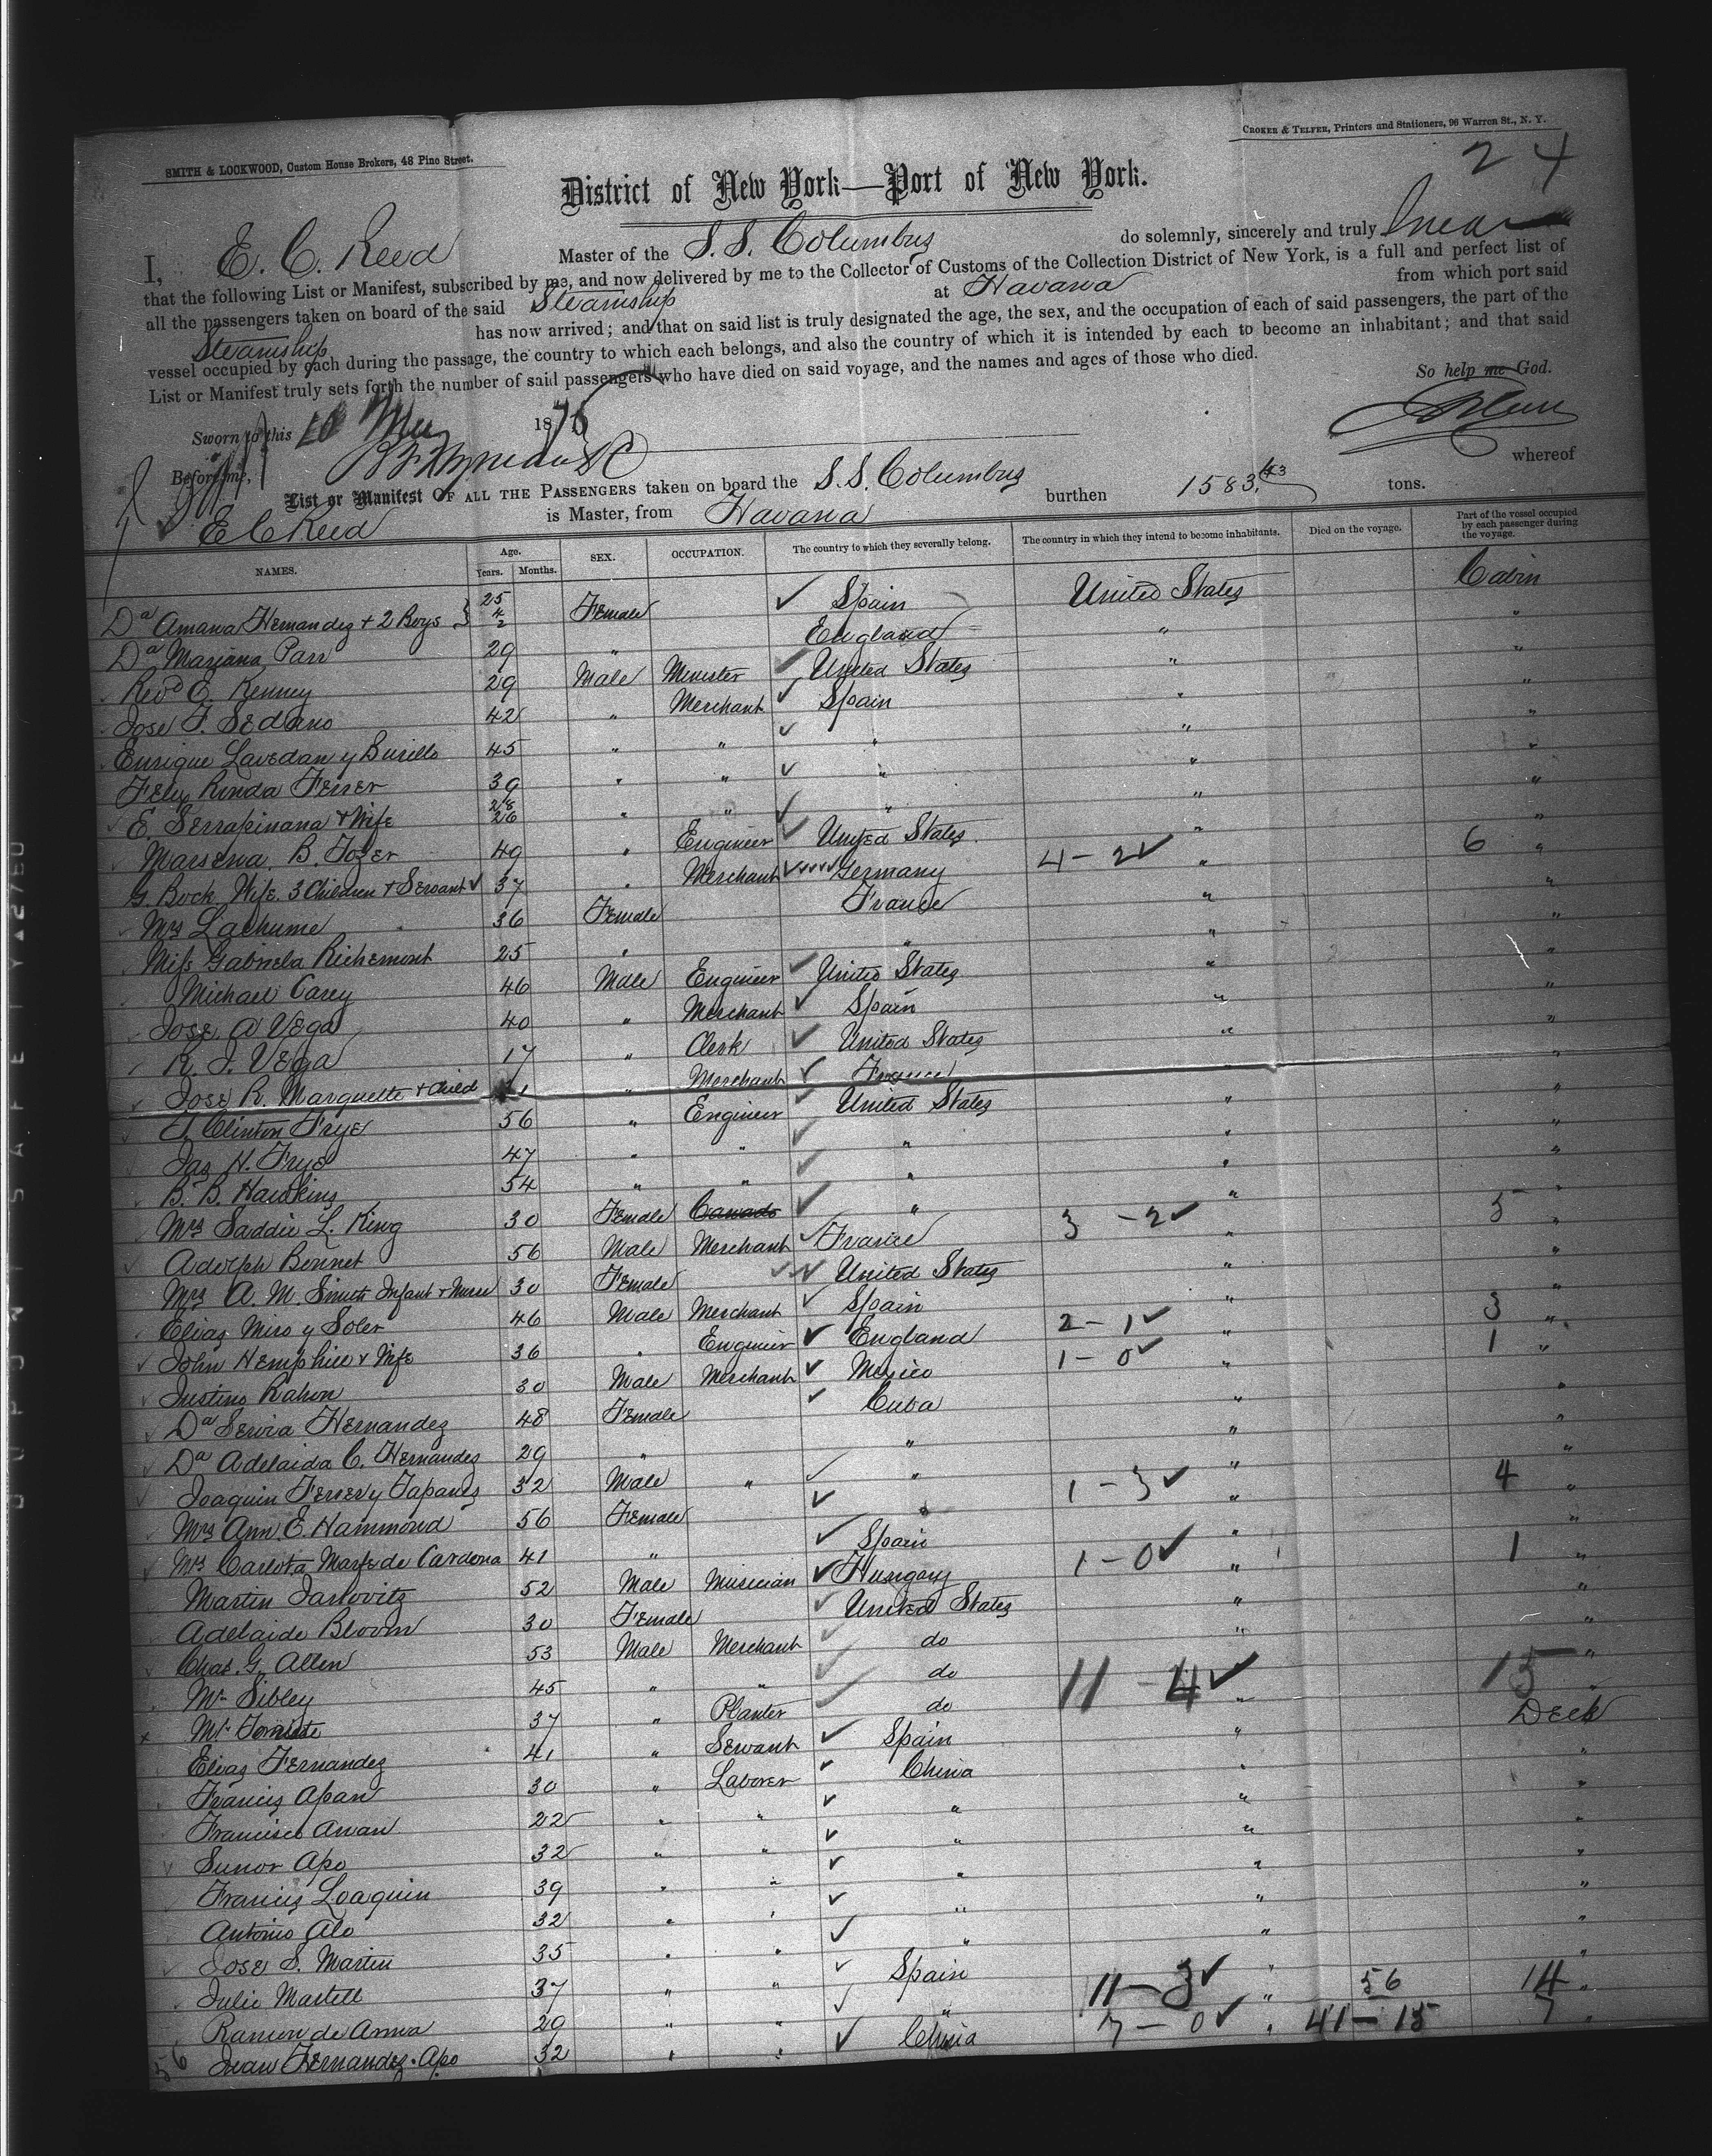 CROKER & TELFER, Printers and Stationers, 96 Warren St., N. Y.
SMITH & LOCKWOOD, Custom House Brokers, 48 Pine Street.
24
District of New York—Port of New York.
I, E. C. Reed Master of the S. S. Columbus do solemnly, sincerely and truly swear
that the following List or Manifest, subscribed by me, and now delivered by me to the Collector of Customs of the Collection District of New York, is a full and perfect list of
all the passengers taken on board of the said Steamship at Havana from which port said
Steamship has now arrived; and that on said list is truly designated the age, the sex, and the occupation of each of said passengers, the part of the
vessel occupied by each during the passage, the country to which each belongs, and also the country of which it is intended by each to become an inhabitant; and that said
List or Manifest truly sets forth the number of said passengers who have died on said voyage, and the names and ages of those who died.
So help me God.
Sworn to this 10 1876
Before me,
List or Manifest OF ALL THE PASSENGERS taken on board the S. S. Columbus burthen 1583.43 tons. whereof
E C Reed is Master, from Havana
NAMES. Age. Years. Months. SEX. OCCUPATION. The country to which they severally belong. The country in which they intend to become inhabitants. Died on the voyage. Part of the vessel occupied by each passenger during the voyage.
Da Amana Hernandez + 2 Boys } 25 4 2 Female Spain United States Cabin
Da Mariana Parr 29 " England " "
Revd E. Kenney 29 Male Minister United States " "
Jose F. Sedano 42 " Merchant Spain " "
Enrique Lavedan y Burillo 45 " " " " "
Felix Ronda Ferrer 39 " " " " "
E. Serrapinana + Wife 28 26 " " " " "
Marsena B. Tozer 49 " Engineer United States " "
G. Bock Wife 3 Children + Servant 37 " Merchant Germany 4-2 " 6 "
Mrs Lachume 36 Female France " "
Miss Gabriela Richemont 25 " " " "
Michael Carey 46 Male Engineer United States " "
Jose A Vega 40 " Merchant Spain " "
R. J. Vega 17 " Clerk United States " "
Jose R. Marquette + Child " Merchant France "
J. Clinton Frye 56 " Engineer United States " "
Jas H. Frye 47 " " " " "
B. B. Hawkins 54 " " " " "
Mrs Saddie L. King 30 Female " " "
Adolph Bonnet 56 Male Merchant France 3-2 " 5 "
Mrs A. M. Smith Infant + Nurse 30 Female United States " "
Elias Miro y Soler 46 Male Merchant Spain " "
John Hemphill + Wife 36 " Engineer England 2-1 " 3 "
Justino Rahon 30 Male Merchant Mexico 1-0 " 1 "
Da Servia Hernandez 48 Female Cuba " "
Da Adelaida C. Hernandez 29 " " " "
Joaquin Ferrer y Tapanes 32 Male " " " "
Mrs Ann. E. Hammond 56 Female " 1-3 " 4 "
Mrs Carlota de Cardona 41 " Spain " "
Martin 52 Male Musician Hungary 1-0 " 1 "
Adelaide Bloom 30 Female United States " "
Chas. G. Allen 53 Male Merchant do " "
Mr Sibley 45 " " do " "
Mr 37 " Planter do 11-4 " 15 "
Elias Fernandez 41 " Servant Spain " Deck
Francis Apan 30 " Laborer China " "
Francisco Awan 22 " " " " "
Sunor Apo 32 " " " " "
Francis Loaquin 39 " " " " "
Antonio Alo 32 " " " " "
Jose S. Martin 35 " " " " "
Julio Martell 37 " " Spain " "
Ramon de Arma 29 " " " 11-3 " 56 14 "
56 Juan Fernandez Apo 32 " " China 7-0 " 41-15 7 "